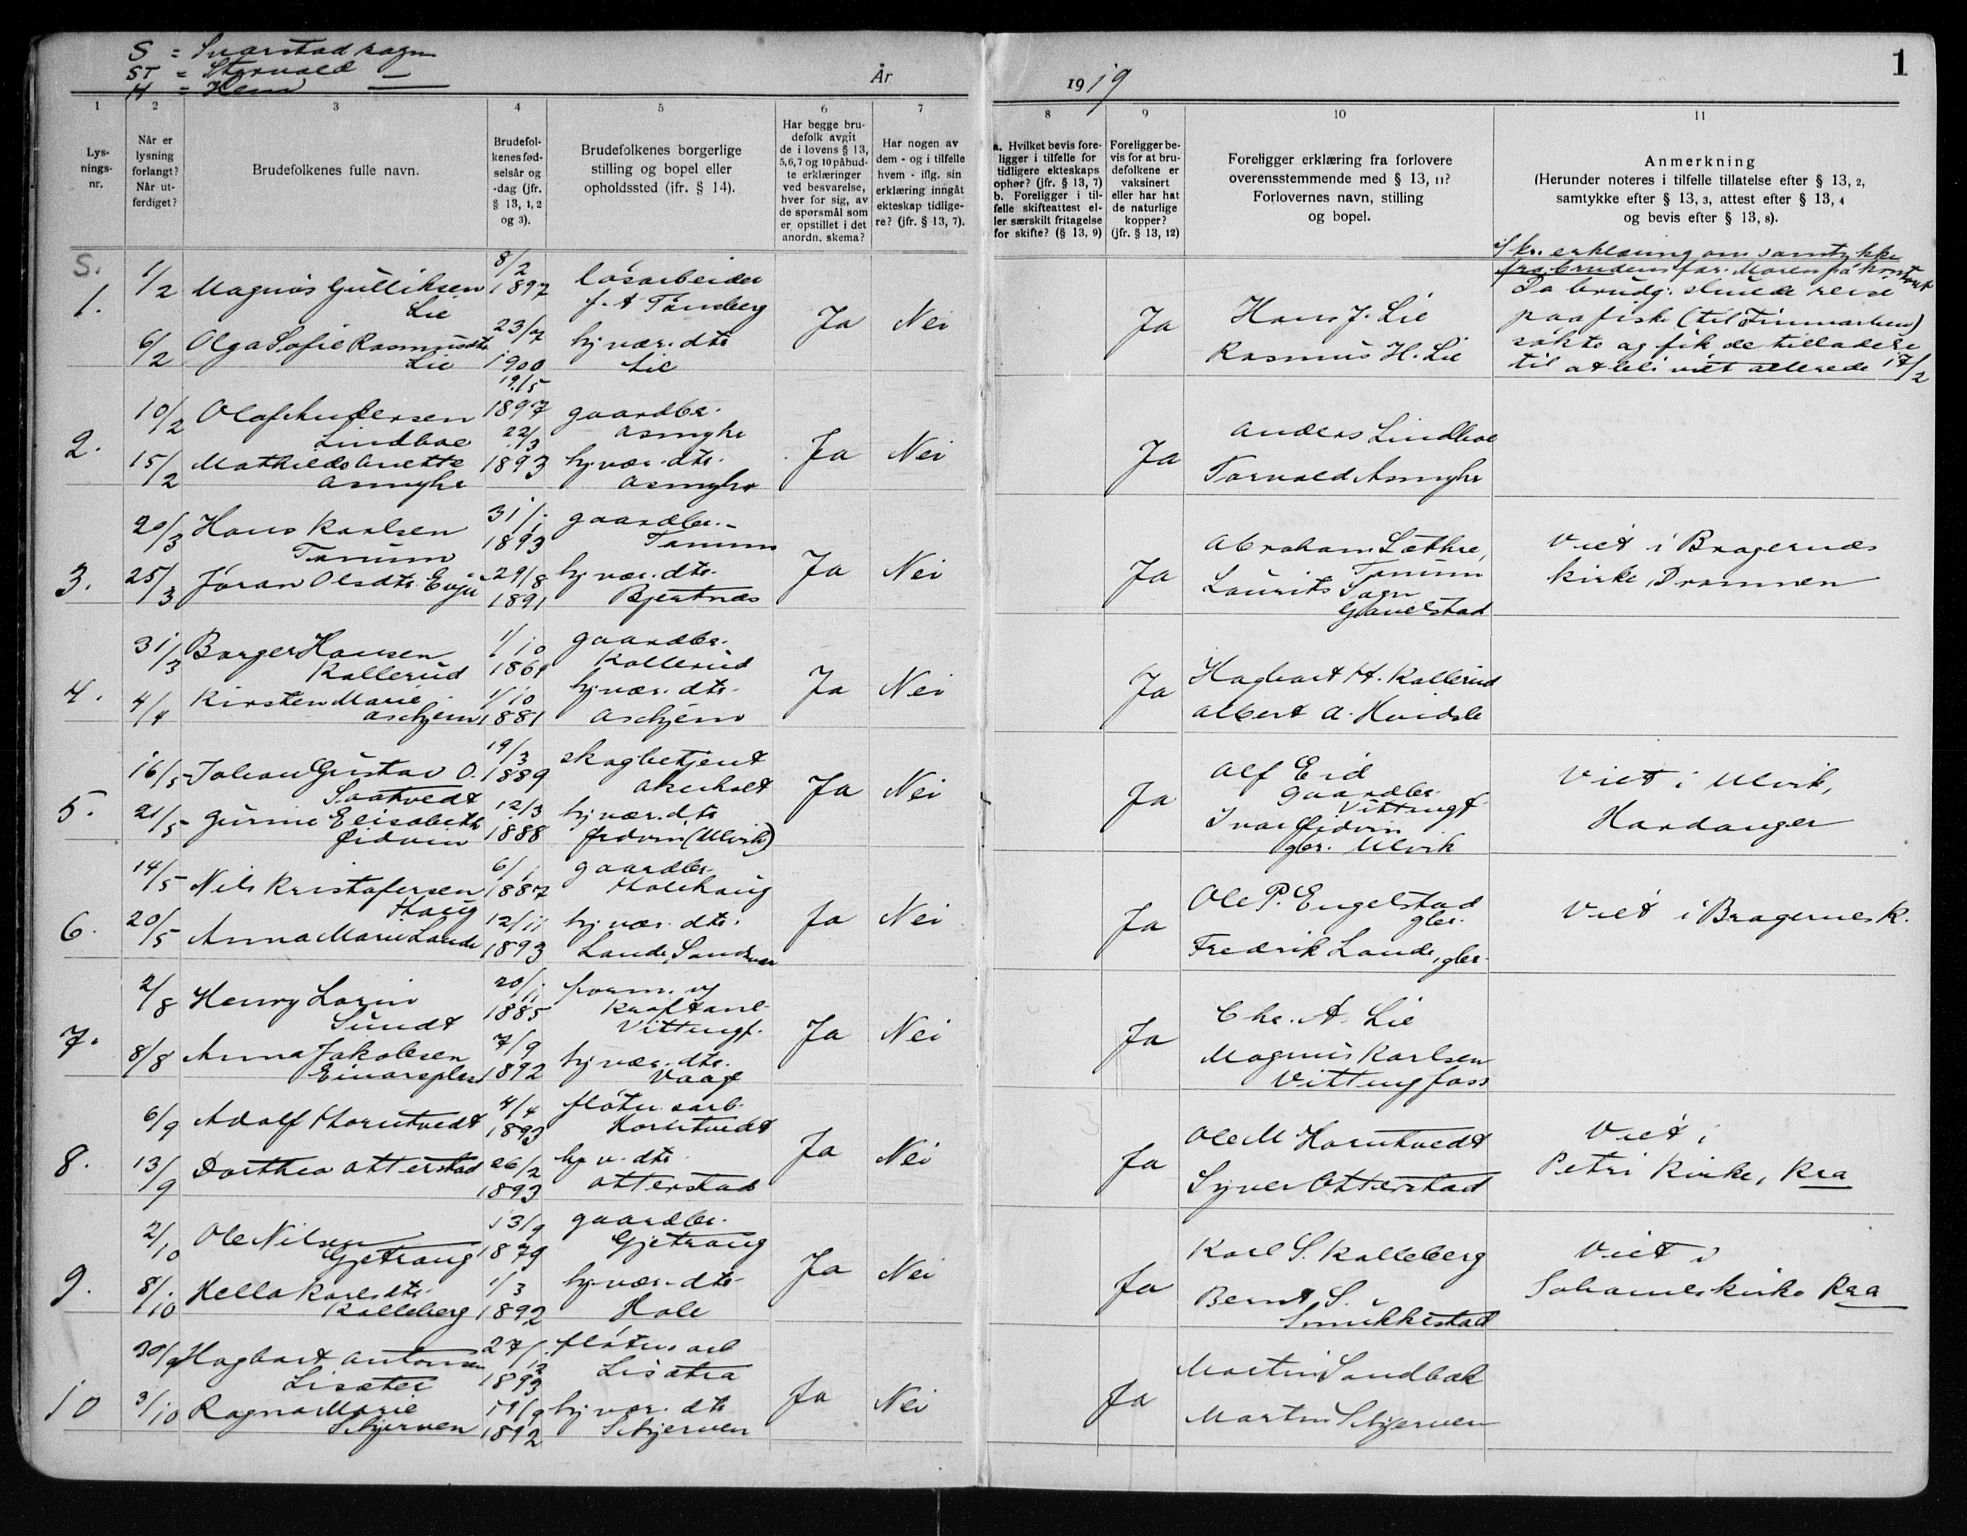 S = Svarstad sogn
ST = Styrvold —
H = Hem —
År
1919
1
1
Lys-
nings-
nr.
2
Når er
lysning
forlangt?
Når ut-
ferdiget?
3
Brudefolkenes fulle navn.
4
Brudefol-
kenes fød-
selsår og
-dag (jfr.
§ 13, 1, 2
og 3).
5
Brudefolkenes borgerlige
stilling og bopel eller
opholdssted (ifr. § 14).
6
Har begge bru-
defolk avgit
de i lovens § 13,
5,6,7 og 10 påbud-
te erklæringer
ved besvarelse,
hver for sig, av
de spørsmål som
er opstillet i det
anordn. skema?
7
Har nogen av
dem - og i tilfelle
hvem - iflg. sin
erklæring inngått
ekteskap tidlige-
re? (jfr. § 13, 7).
8
a. Hvilket bevis fore-
ligger i tilfelle for
tidligere ekteskaps
ophør? (jfr. § 13, 7)
b. Foreligger i til-
felle skifteattest el-
ler særskilt fritagelse
for skifte? (§ 13, 9)
9
Foreligger be-
vis for at bru-
defolkene er
vaksinert
eller har hat
de naturlige
kopper?
(jfr. § 13, 12)
10
Foreligger erklæring fra forlovere
overensstemmende med § 13, 11?
Forlovernes navn, stilling
og bopel.
11
Anmerkning
(Herunder noteres i tilfelle tillatelse efter § 13, 2,
samtykke efter § 13, 3, attest efter § 13, 4
og bevis efter § 13, 8).
S.
1.
1/2 Magnus Gulliksen
Lie
8/2
1897
løsarbeider
f. A Tønsberg
6/2 Olga Sofie Rasmusdtr
Lie
23/7
1900
hj. vær. dtr
Lie
Ja Nei
Ja
Hans J. Lie
Rasmus H. Lie
Skr. erklæring om samtykke
fra brudens far. Moren på kontoret
Da brudg. skulde reise
paa fiske (til Finmarken)
søkte og fik de tilladelse
til at bli viet allerede 17/2
2.
10/2 Olaf Andersen
Lindboe
19/5
1897
gaardbr.
Asmyhr
15/2 Mathilde Anette
Asmyhr
22/3
1893
hj. vær. dtr.
Asmyhr
Ja Nei
Ja
Anders Lindboe
Torvald Asmyhr
3.
20/3 Hans Karlsen
Tanum
31/1
1893
gaardbr.
Tanum
25/3 Jøran Olsdtr. Evju
29/8
1891
hj. vær. dtr.
Bjertnæs
Ja Nei
Ja
Abraham Løthre,
Tanum
Laurits Sogn
Gavelstad
Viet i Bragernæs
kirke, Drammen
4.
31/3 Borger Hansen
Kollerud
1/10
1861
gaardbr.
Kollerud
4/4 Kirsten Marie
Askjem
1/10
1881
hj. vær. dtr.
Askjem
Ja Nei
Ja
Hagbart H. Kollerud
Albert A. Hvidste
5.
16/5 Johan Gustav O.
Saatvedt
19/3
1889
skogbetjent
Akerholt
21/5 Gurine Elisabeth
Øidvin
12/3
1888
hj. vær. dtr
Øidvin (Ulvik)
Ja Nei
Ja
Alf Eid
gaardbr.
Vittingf.
Ivar Øidvin
gbr. Ulvik
Viet i Ulvik,
Hardanger
6.
14/5 Nils Kristofersen
Haug
6/1
1887
gaardbr.
Holehaug
20/5 Anna Marie Lande
12/11
1893
hj. vær. dtr.
Lande, Sandsvær
Ja Nei
Ja
Ole P. Engelstad
gbr.
Fredrik Lande, gbr.
Viet i Bragernes k.
7.
2/8 Henry Lorin
Sundt
20/11
1885
form. v/
kraftanl.
Vittingf.
8/8 Anna Jakobsen
Einarsplass
7/9
1892
hj. vær. dtr.
Vaaf
Ja Nei
Ja
Chr. A. Lie
Magnus Karlsen
Vittingfoss
8.
6/9 Adolf Horntvedt
4/4
1893
fløtn. sarb.
Horntvedt
13/9 Dorthea Otterstad
26/2
1893
hj. v. dtr.
Otterstad
Ja Nei
Ja
Ole M Horntvedt
Syver Otterstad
Viet i
Petri Kirke, Kra
9.
2/10 Ole Nilsen
Gjetrang
13/9
1879
gaardbr.
Gjetrang
8/10 Hella Karlsdtr.
Kolleberg
1/3
1892
hj. vær. dtr.
Hole
Ja Nei
Ja
Karl S. Kolleberg
Bernt S.
Smukkestad
Viet i
Johanneskirke Kra
10
30/9 Hagbart Antonsen
Lisæter
27/12
1893
fløtn. arb
Lisætra
3/10 Ragna Marie
Skjerven
19/9
1892
hj. vær. dtr
Skjerven
Ja Nei
Ja
Martin Sandbæk
Martin Skjerven